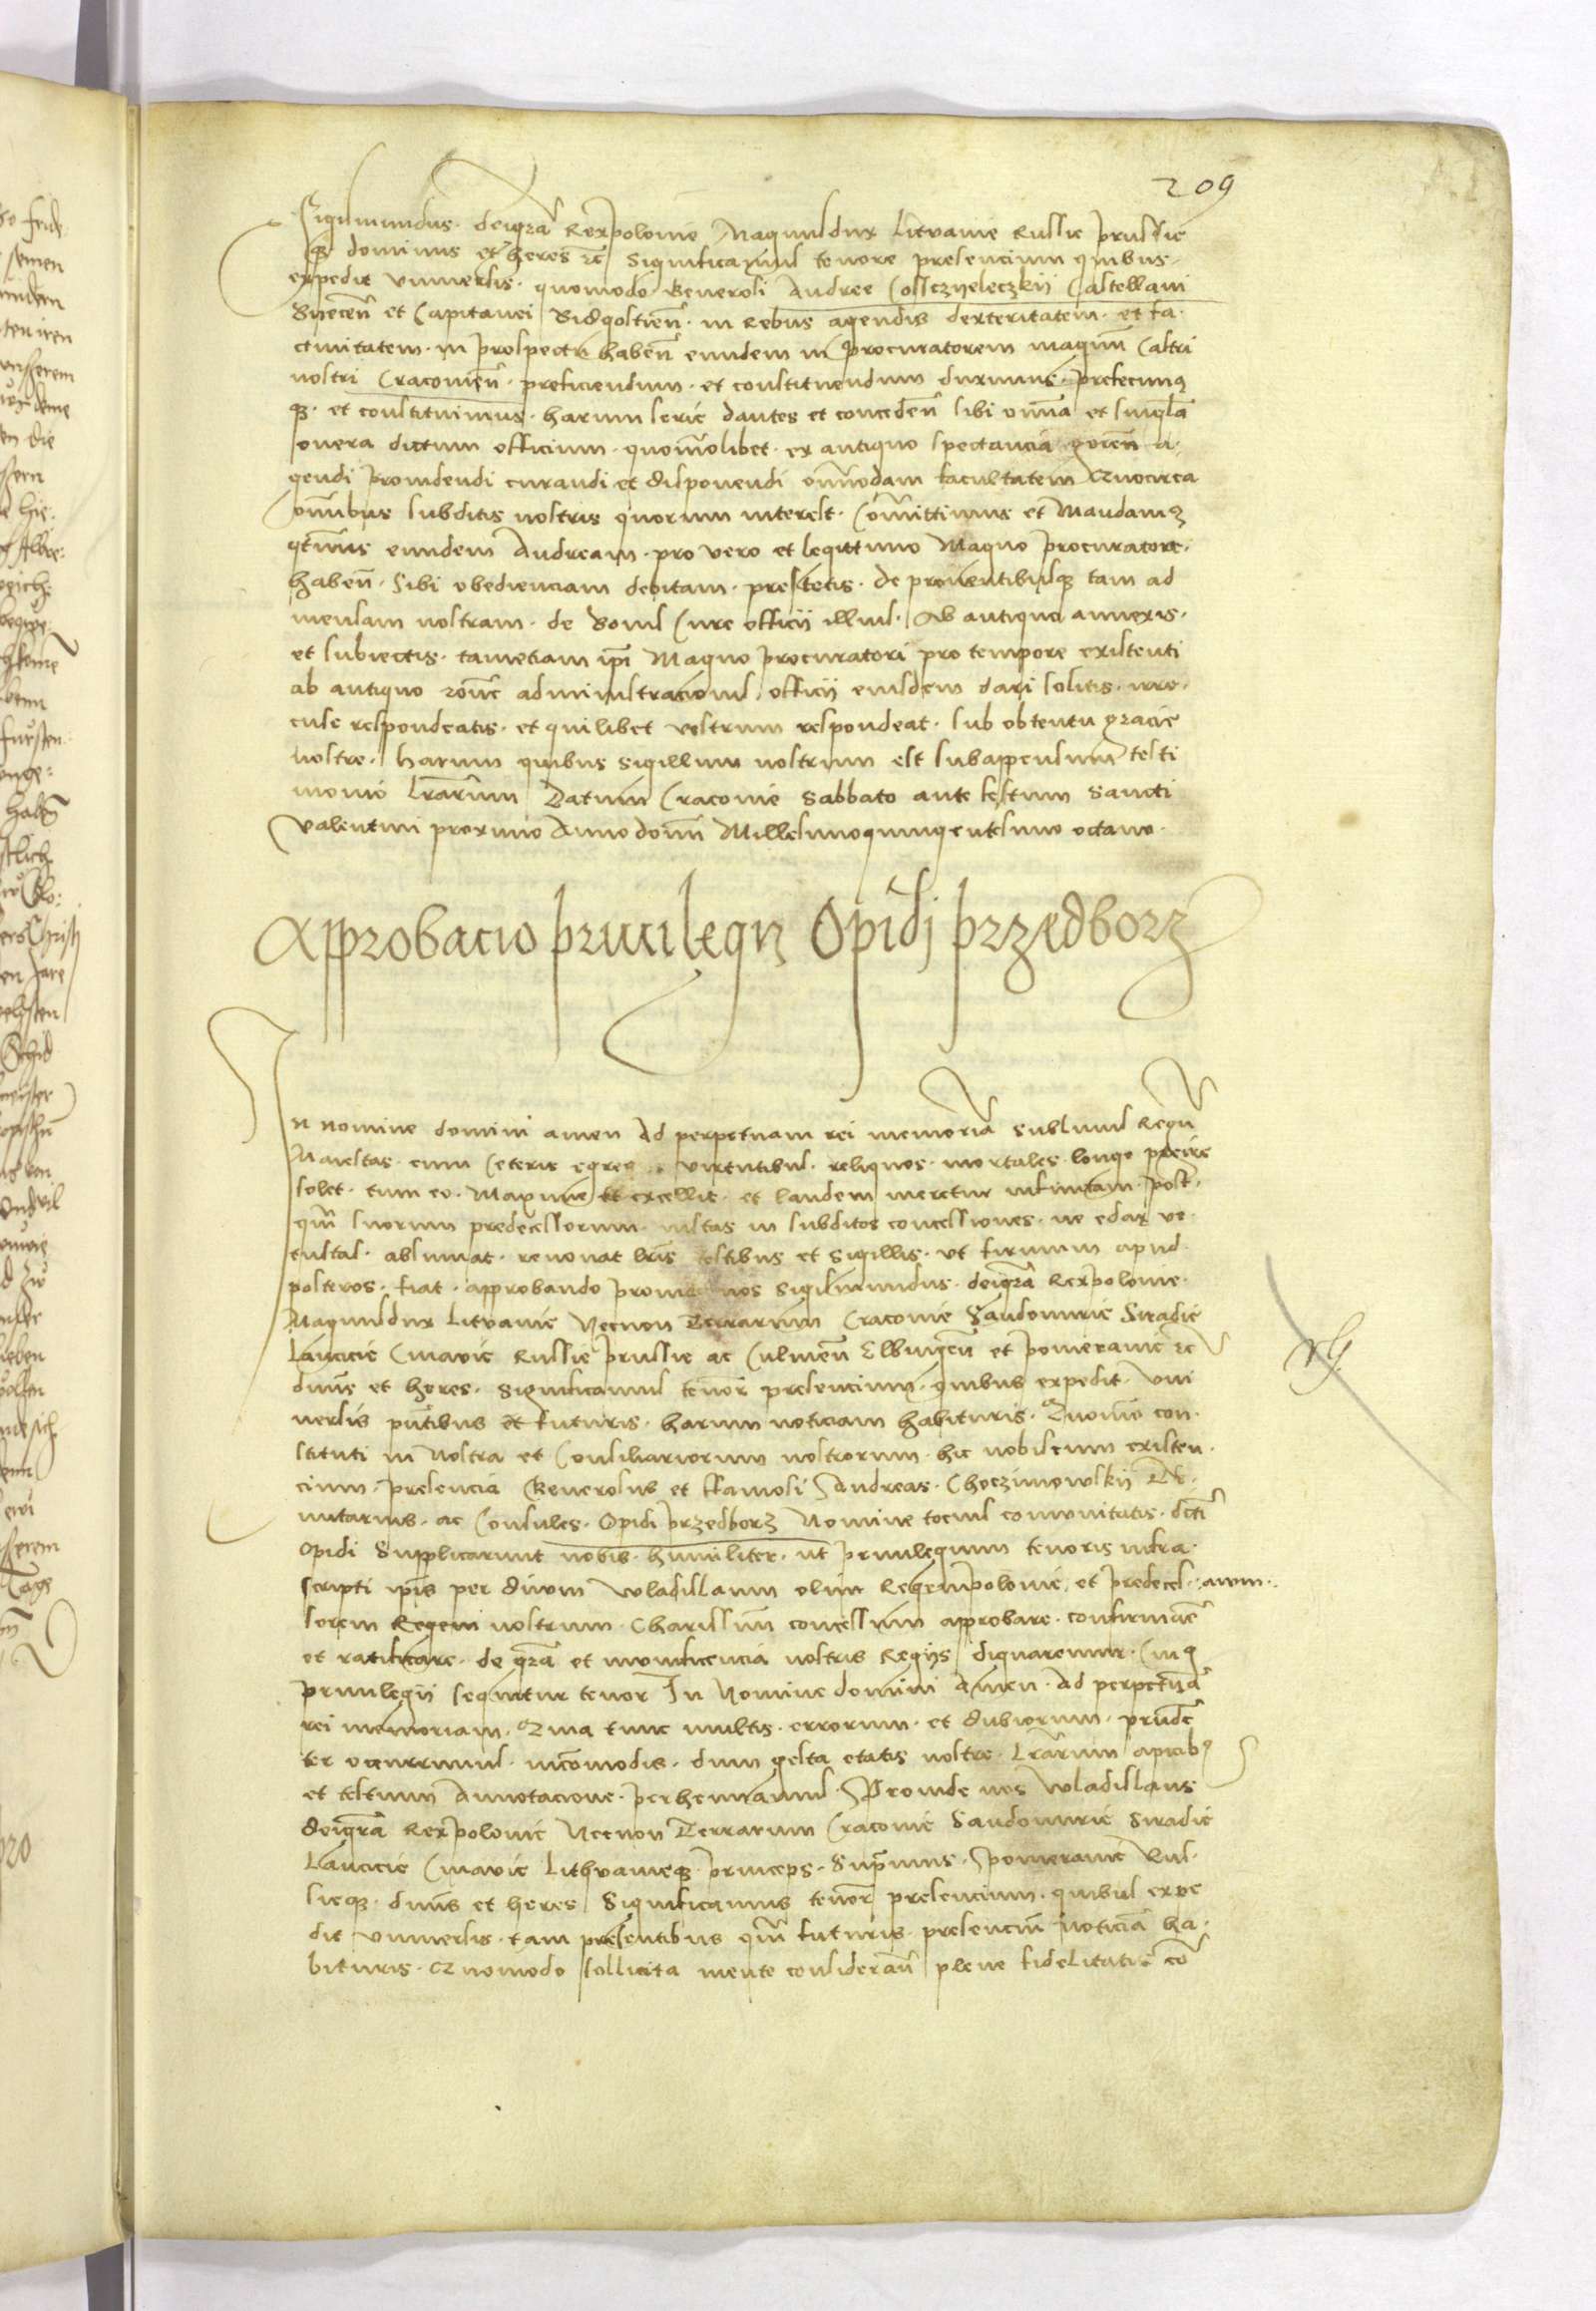 209
Sigismundus deigrã Rexpolonie Magnusdux Litvanie Russie prussie
q3 dominus et heres zc Significamus tenore presencium quibus
expedit Universis quomodo Generosi Andree Cossczyeleczkij Castellani
et Capitanei Bidgostieñ in Rebus agendis dexteritatem et fa
ctivitatem in prospectu habeñ eundem in procuratorem magnũ Castri
nostri Cracovieñ preficiendum et constituendum duximus prefecimus
q3 et constituimus harum serie dantes et concedeñ sibi omĩa et singla
onera dictum officium quomolibet ex antiquo spectancia gereñ a
gendi providendi curandi et disponendi omĩodam facultatem Quocirca
omĩbus subditis nostris quorum interest Comĩttimus et Mandam3
qteñus eundem Andream pro vero et legittimo Magno procuratore
habeñ Sibi obedienciam debitam prestetis de proventibusq3 tam ad
mensam nostram de Bonis Jure officij illius Ab antiquo annexis
et subiectis tametiam ipĩ Magno procuratori pro tempore existenti
ab antiquo rõne administracionis officij eiusdem dari solitis irre
cuse respondeatis et quilibet vestrum respondeat sub obtentu gracie
nostre harum quibus sigillum nostrum est subappensum testi
monio Lrãrum Datum Cracovie Sabbato ante festum Sancti
Valentini proximo Anno domĩ Millesimoquingentesimo octavo
Approbacio privilegij Opidj przedborz
In nomine domini amen Ad perpetuam rei memoriã Sublimis Regũ
Maiestas cum Ceteris egreg virtutibus reliquos mortales longo preire
solet tum eo Maxime et excellit et laudem meretur infinitam post
qm̃ suorum predecessorum iustas in subditos concessiones ne edax ve
tustas absumat renovat lrĩs testibus et sigillis ut firmum apud
posteros fiat approbando Proinde nos Sigismundus deigrã Rexpolonie
Magnusdux Litvanie Necnon Terrarum Cracovie Sandomirie Siradie
Lancicie Cuiavie Russie prussie ac Culmeñ Elbingeñ et pomeranie zc
dnũs et heres Significamus tenor presencium quibus expedit Uni
versis pñtibus et futuris harum noticiam habituris Quomõ con
stituti in Nostra et Consiliariorum nostrorum hic nobiscum existen
cium presencia Generosus et ffamosi Andreas Choczimowskij Te
nutarius ac Consules Opidi przedborz Nomine tocius comunitatis dcti
opidi Supplicarunt nobis humiliter ut privilegium tenoris infra
scripti ipĩs per divum Wladislaum olim Regempolonie et predeces avum
sorem Regem nostrum Charissimũ concessum approbare confirmare
et ratificare de grã et munificencia nostris Regijs dignaremur Cuiq
privilegij sequitur tenor In Nomine domini Amen Ad perpetuã
rei memoriam Quia tunc multis errorum et dubiorum prudẽ
ter occurrimus incomodis dum gesta etatis nostre Lrãrum apicib9
et testium Annotacione perhennamus Proinde nos Wladislaus
deigrã Rexpolonie Necnon Terrarum Cracovie Sandomirie Siradie
Lancicie Cuiavie Lithvanieq3 princeps Supremus pomeranie Rus
sieq3 dnũs et heres Significamus tenor presencium quibus expe
dit Universis tam presentibus qm̃ futuris presenciũ noticiã ha
bituris Quomodo sollicita mente considerañ plene fidelitatis cõ